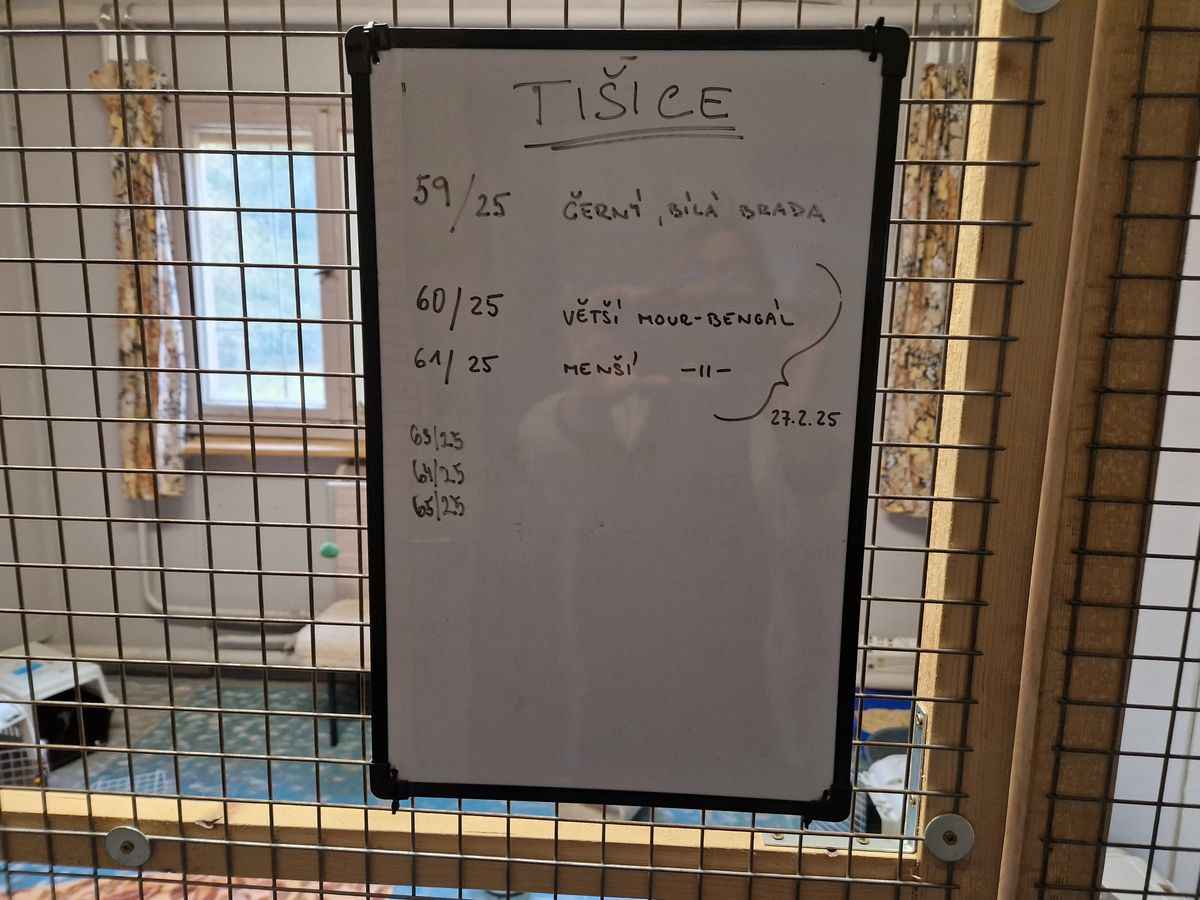 TIŠICE
59/25 ČERNÝ, BÍLÁ BRADA
60/25 VĚTŠÍ MOUR-BENGÁL
61/25 MENŠÍ -II-
27.2.25
63/25
64/25
65/25